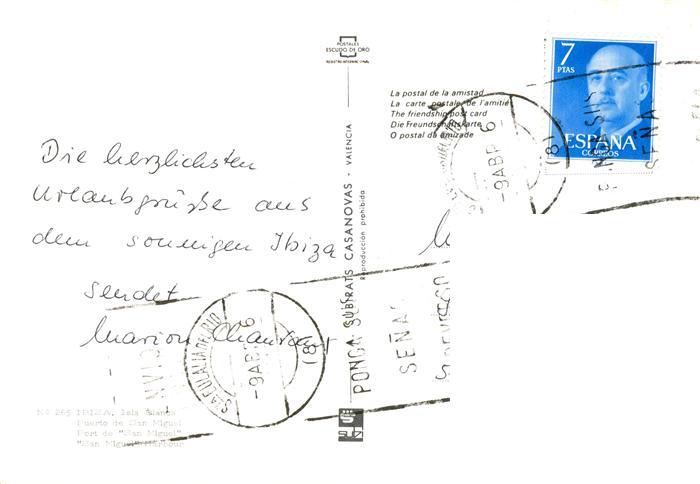 POSTALES
ESCUDO DE ORO
REGISTRO INTERNACIONAL
La postal de la amistad
La carte postale de l'amitié
The friendship post card
Die Freundschaftskarte
O postal da amizade
7
PTAS
ESPAÑA
CORREOS
STA EULALIA DEL RIO
-9 ABR 6-
(8)
SEÑA
Die herzlichsten
Urlaubsgrüße aus
dem sonnigen Ibiza
sendet
Marion
SUBIRATS CASANOVAS - VALENCIA
Reproducción prohibida
STA EULALIA DEL RIO
-9 ABR 6-
(8)
PONGA
SEÑAS
Nº 265 IBIZA, Isla Blanca
Puerto de San Miguel
Port de "San Miguel"
"San Miguel" Harbour